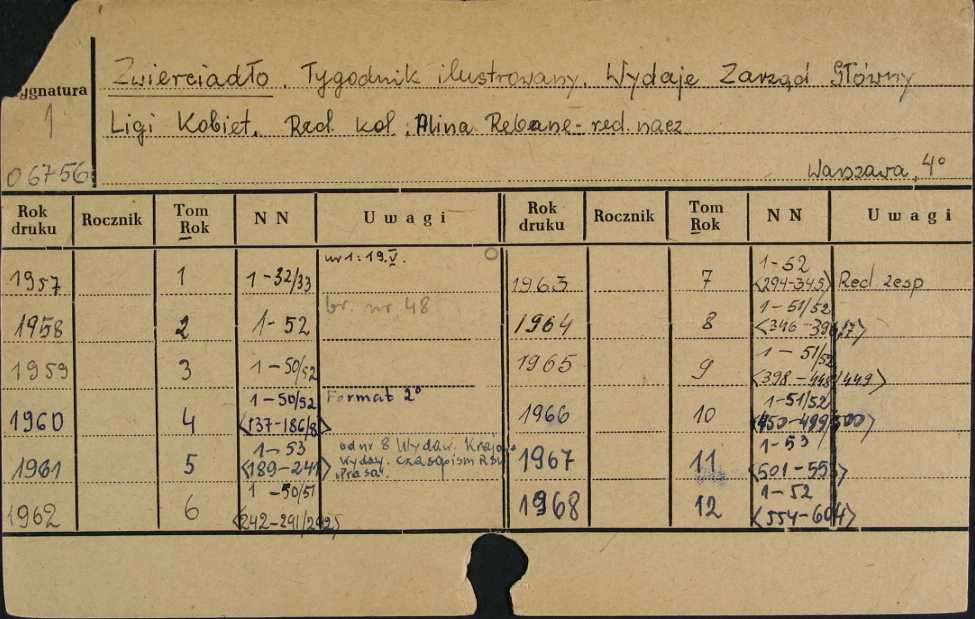 Zwierciadło. Tygodnik ilustrowany. Wydaje Zarząd Główny
ygnatura
1
Ligi Kobiet. Red. kol. Alina Rebane - red. nacz
06756
Warszawa, 4°
Rok druku Rocznik Tom Rok NN Uwagi Rok druku Rocznik Tom Rok NN Uwagi
1957 1 1-32/33 nr 1: 19.V.
1958 2 1-52 br. nr 48
1959 3 1-50/52
1960 4 1-50/52 <137-186/8> Format 2°
1961 5 1-53 <189-241> od nr 8 Wydaw. Krajowe
Wydaw. Czasopism RSW
"Prasa"
1962 6 1-50/51 <242-291/292>
1963 7 1-52 <294-345> Red. zesp
1964 8 1-51/52 <346-396/7>
1965 9 1-51/52 <398-448/449>
1966 10 1-51/52 <450-499/500>
1967 11 1-53 <501-553>
1968 12 1-52 <554-604>